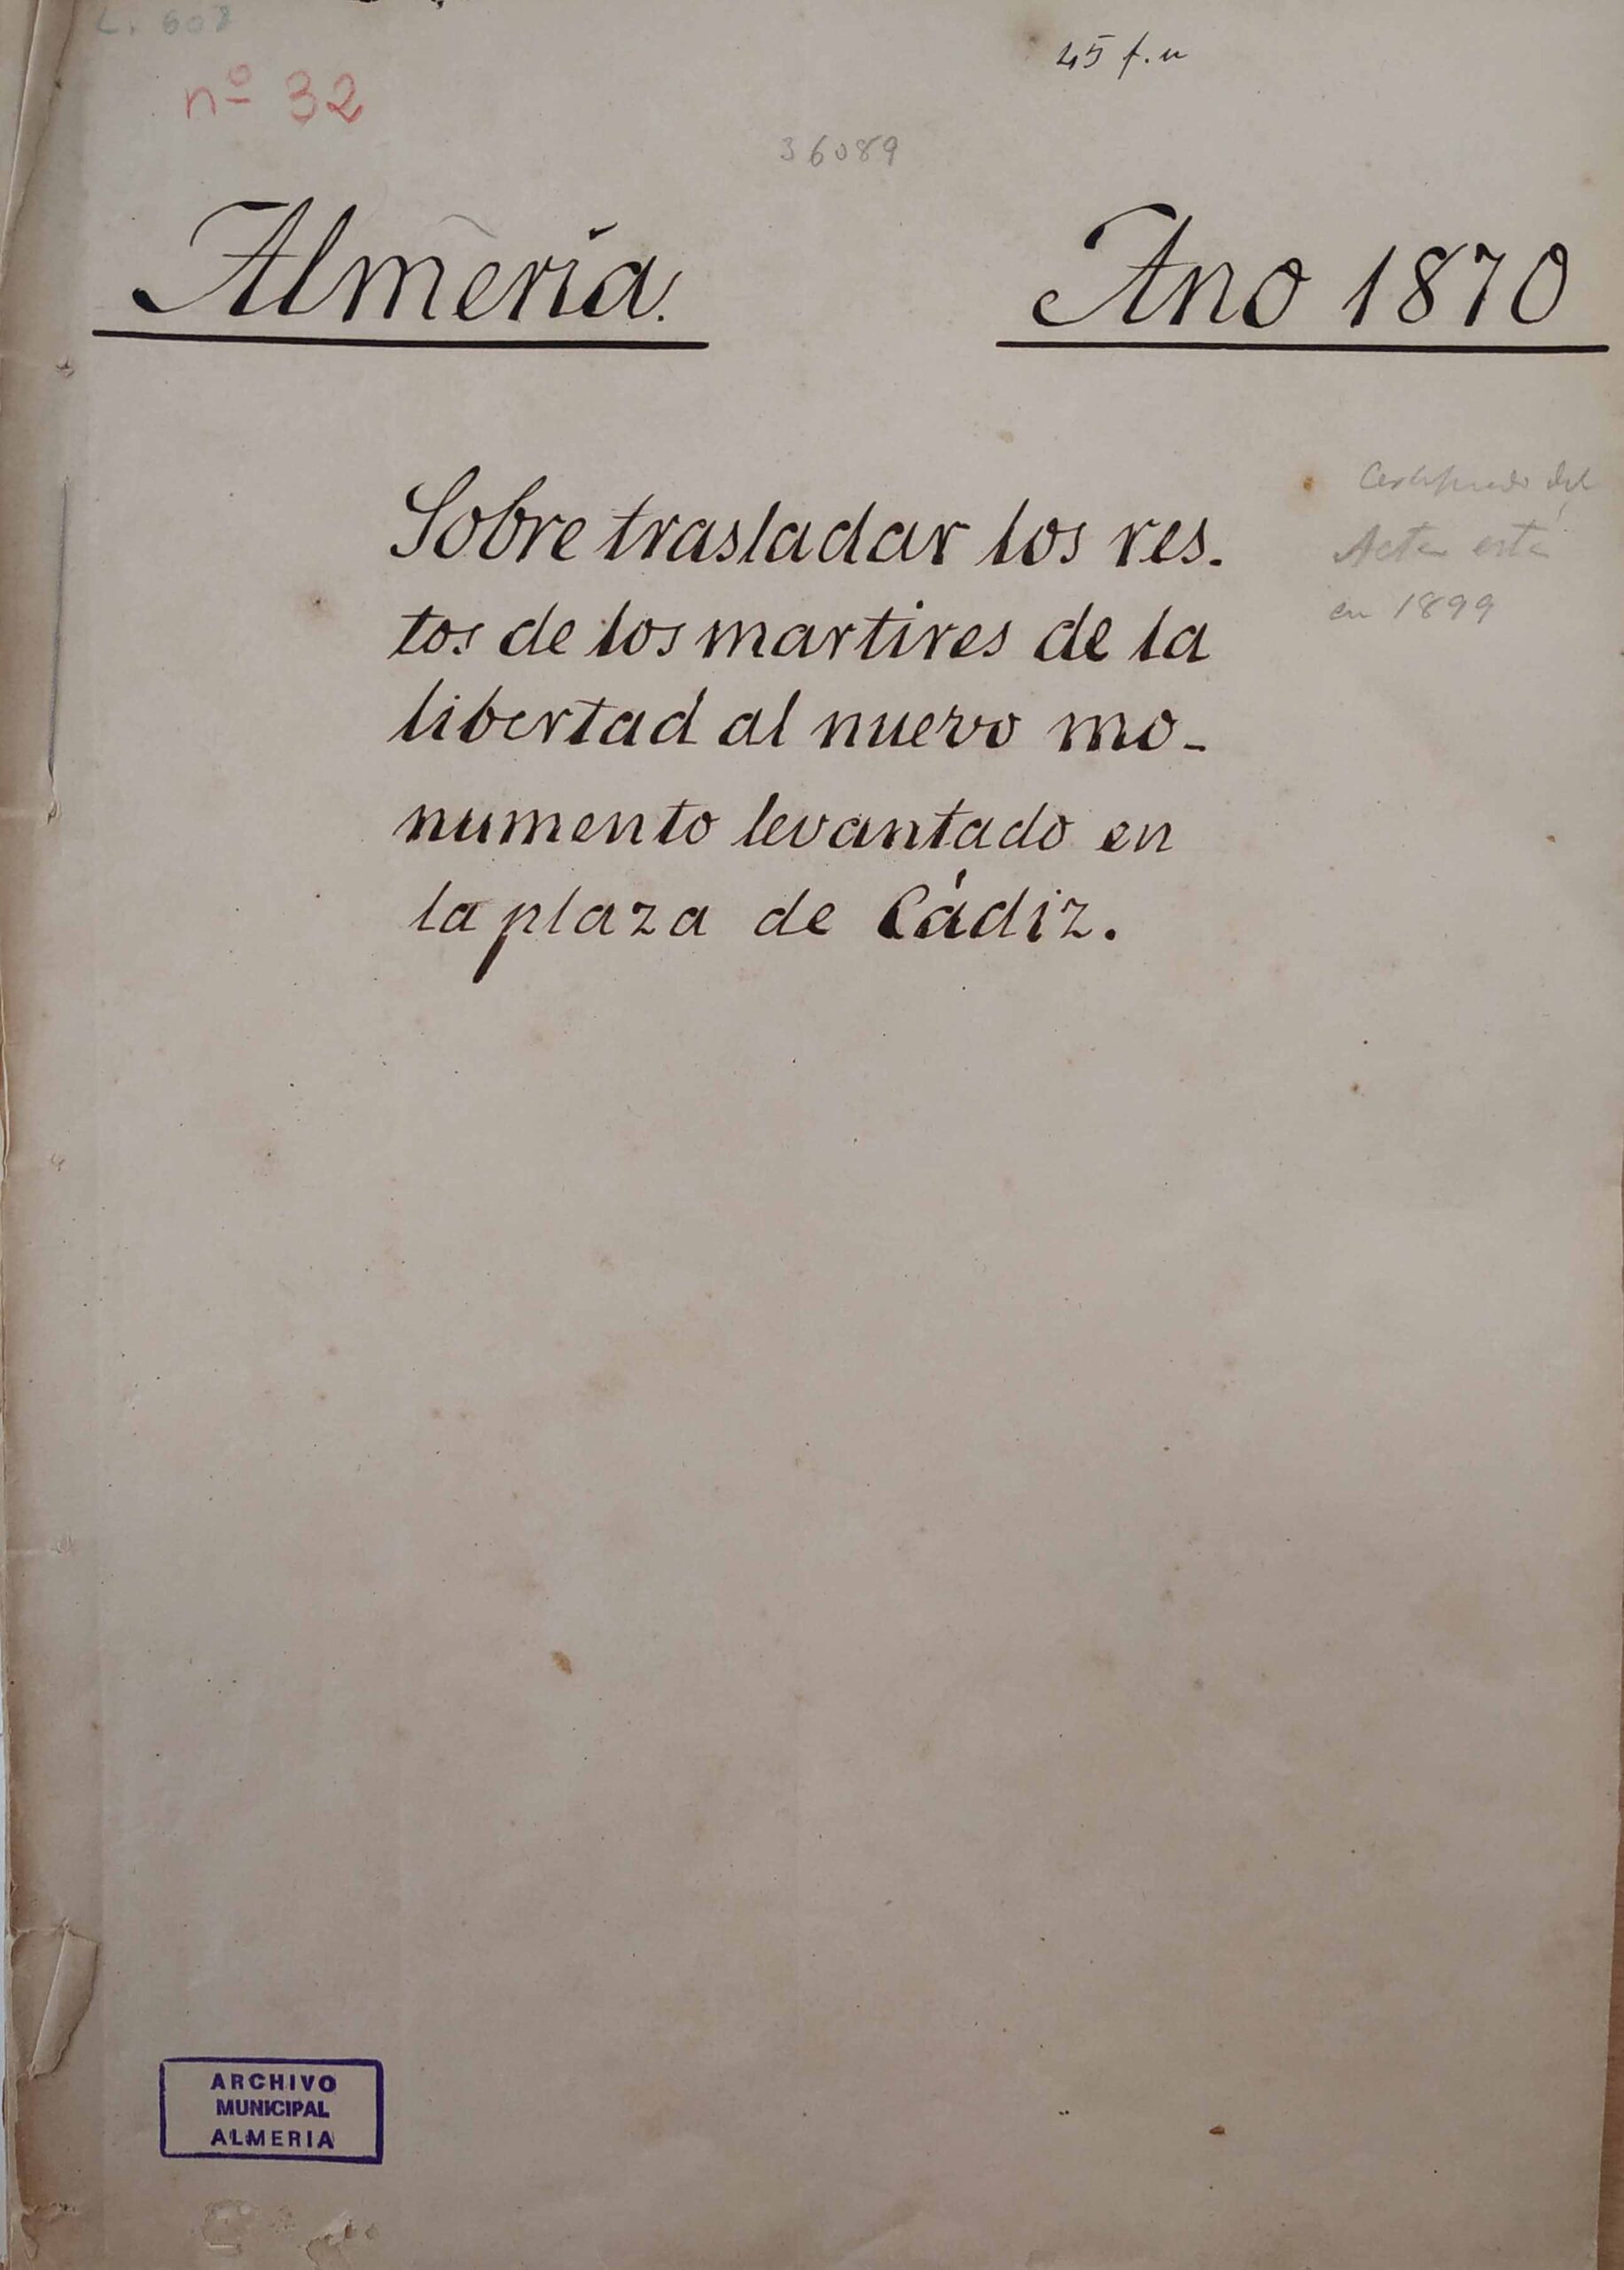 L. 607
nº 32
45 f. u
36089
Almeria.
Ano 1870
Sobre trasladar los res-
tos de los martires de la
libertad al nuevo mo-
numento levantado en
la plaza de Cádiz.
Certificado del
Acta está
en 1899
ARCHIVO
MUNICIPAL
ALMERIA